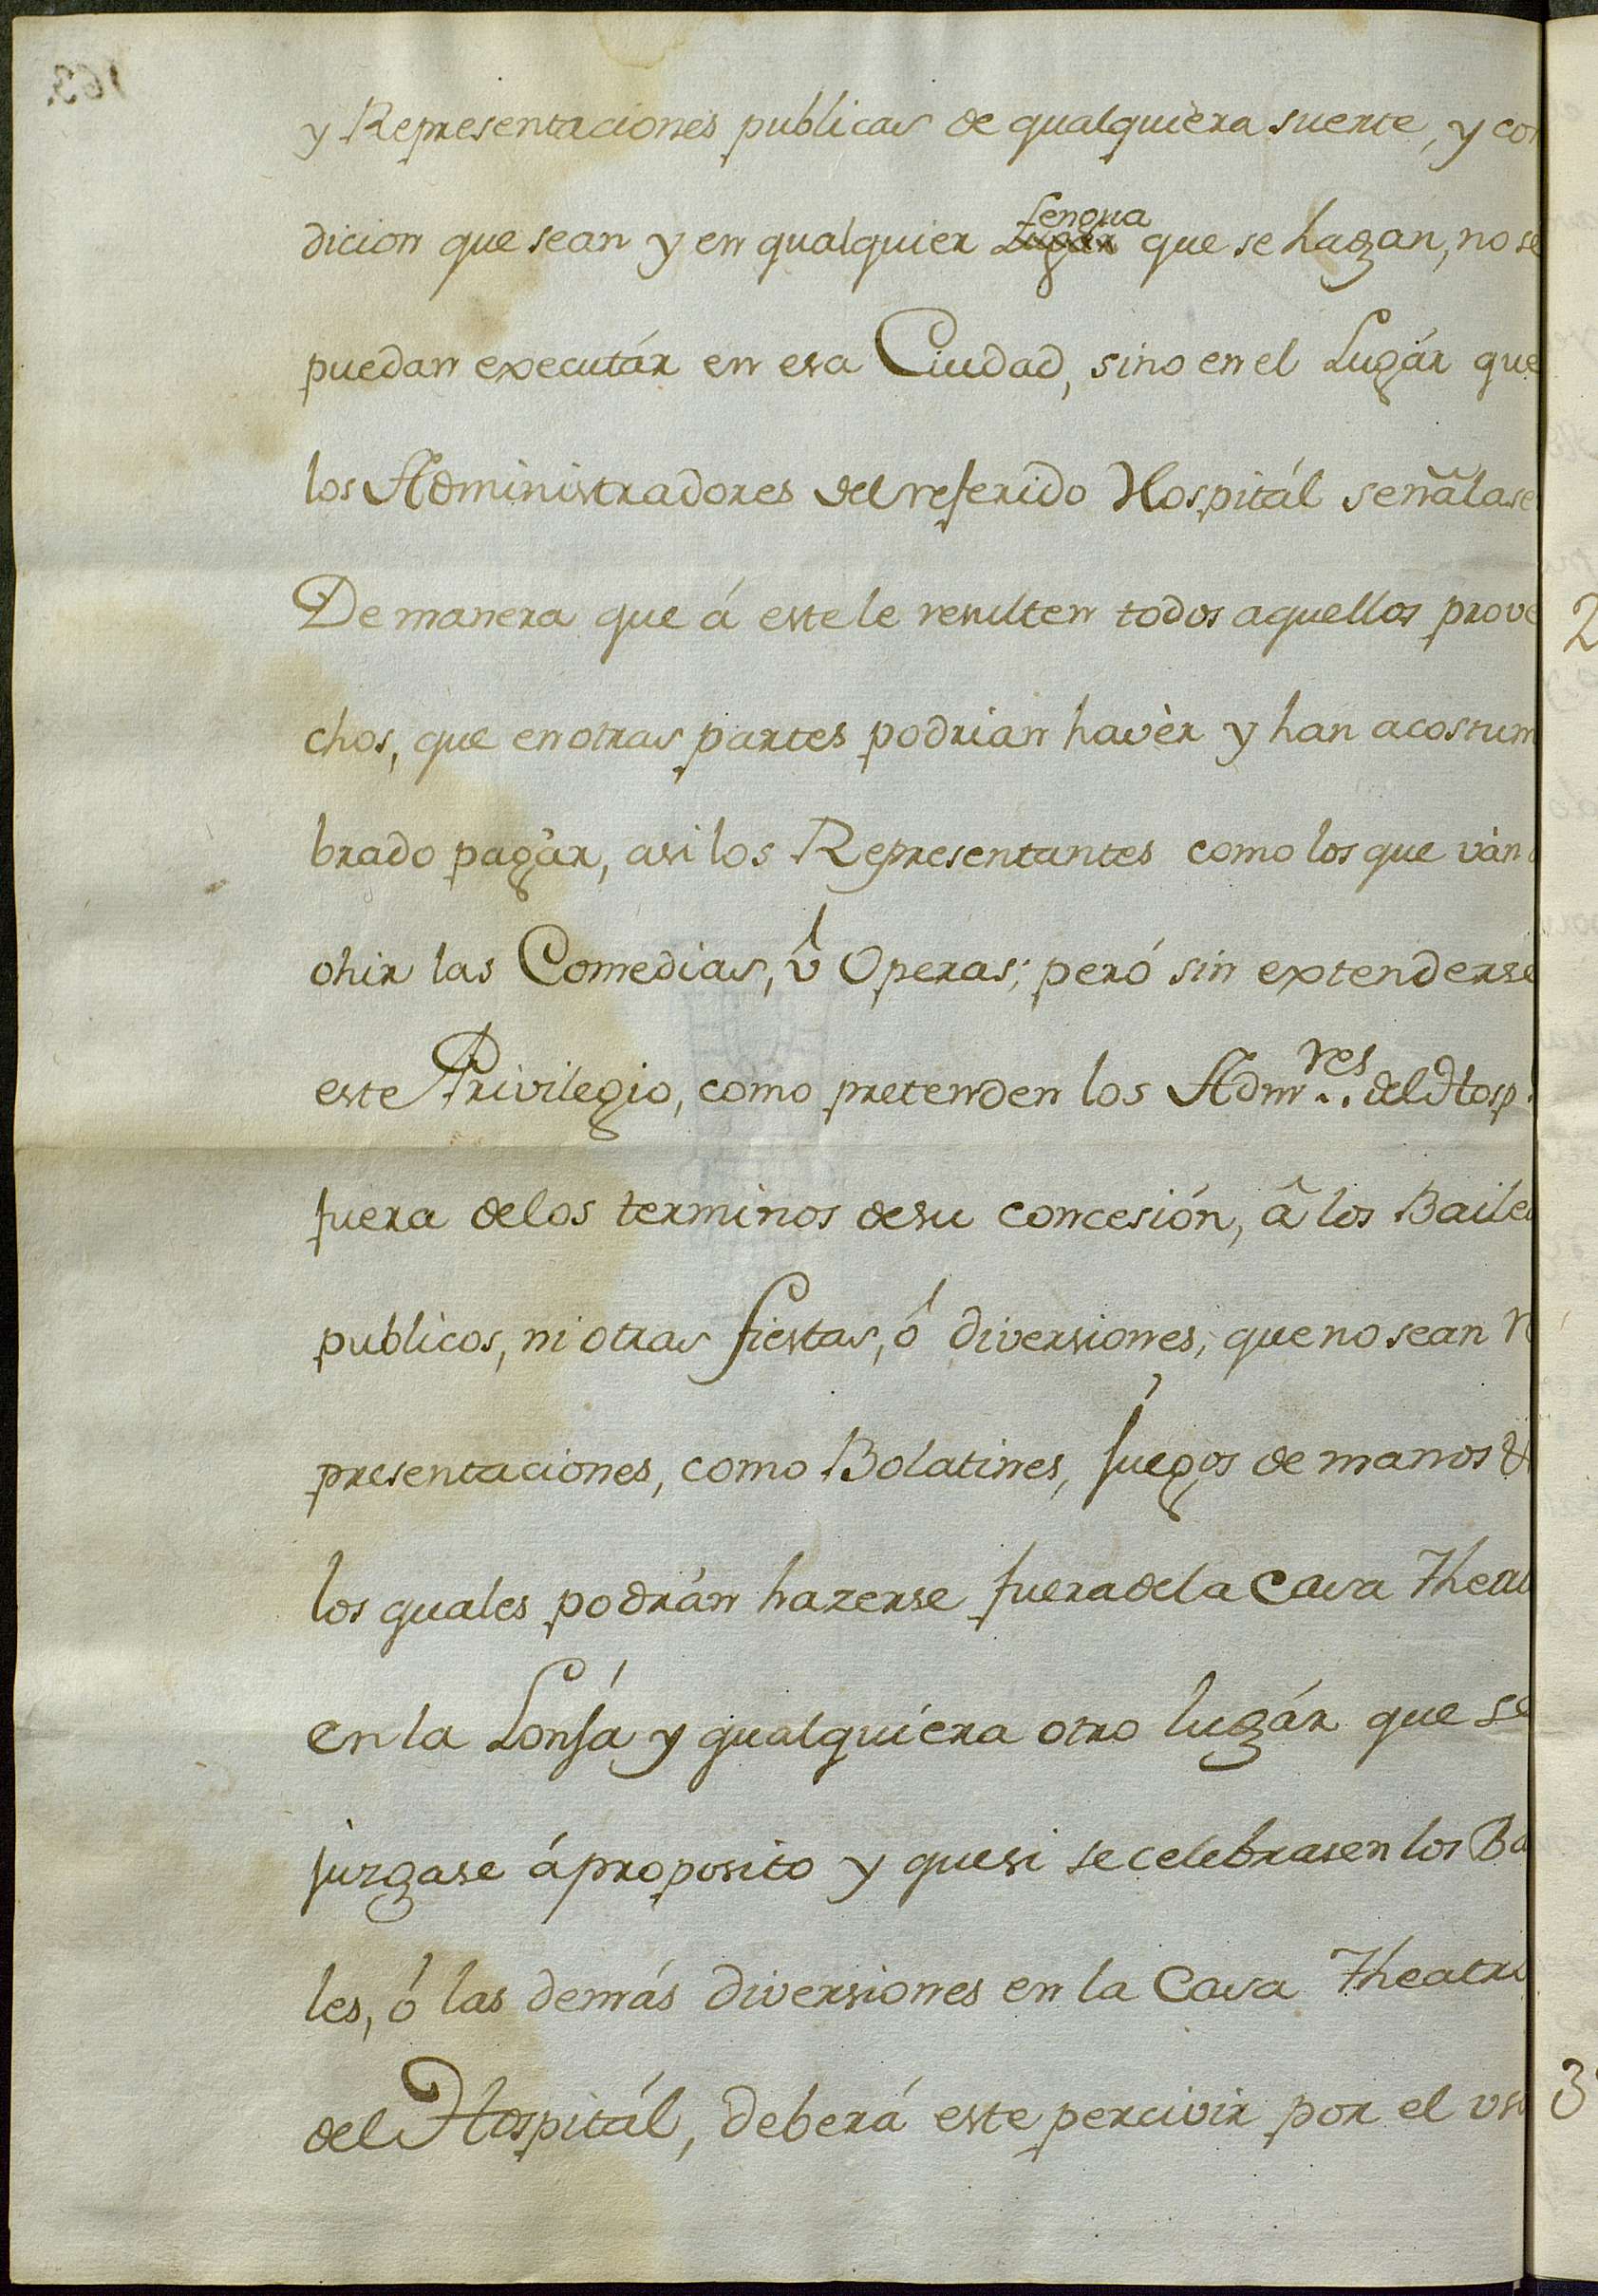 y Representaciones publicas de qualquiera suerte, y con
Lengua
dicion que sean y en qualquier Lugar que se hagan, no se
puedan executár en esa Ciudad, sino en el Lugár que
los Administradores del referido Hospitál señalase
De manera que á este le resulten todos aquellos prove
chos, que en otras partes podrian havèr y han acostum
brado pagár, asi los Representantes como los que ván
ohir las Comedias, ó Operas; peró sin extenderse
este Privilegio, como pretenden los Adm.res del Hosp.
fuera de los terminos de su concesión, â los Baile
publicos, ni otras fiestas, ó diversiones, que no sean r
presentaciones, como Bolatines, Juegos de manos &
los quales podrán hazerse fuera de la Casa Thea
en la Lonja y qualquiera otro lugár que se
juzgase á proposito y que si se celebrasen los Ba
les, ó las demás diversiones en la Casa Theatr
del Hospitál, deberá este percivir por el us
2
3
163.